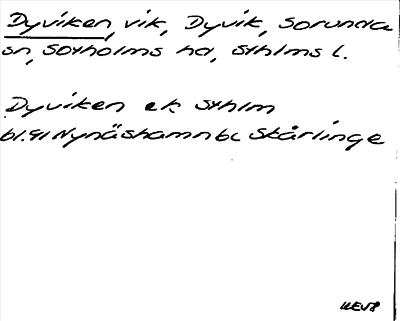 Dyviken, vik, Dyvik, Sorunda
sn, Sotholms hd, Sthlms l.
Dyviken ek Sthlm
bl. 41 Nynäshamn bc Skårlinge